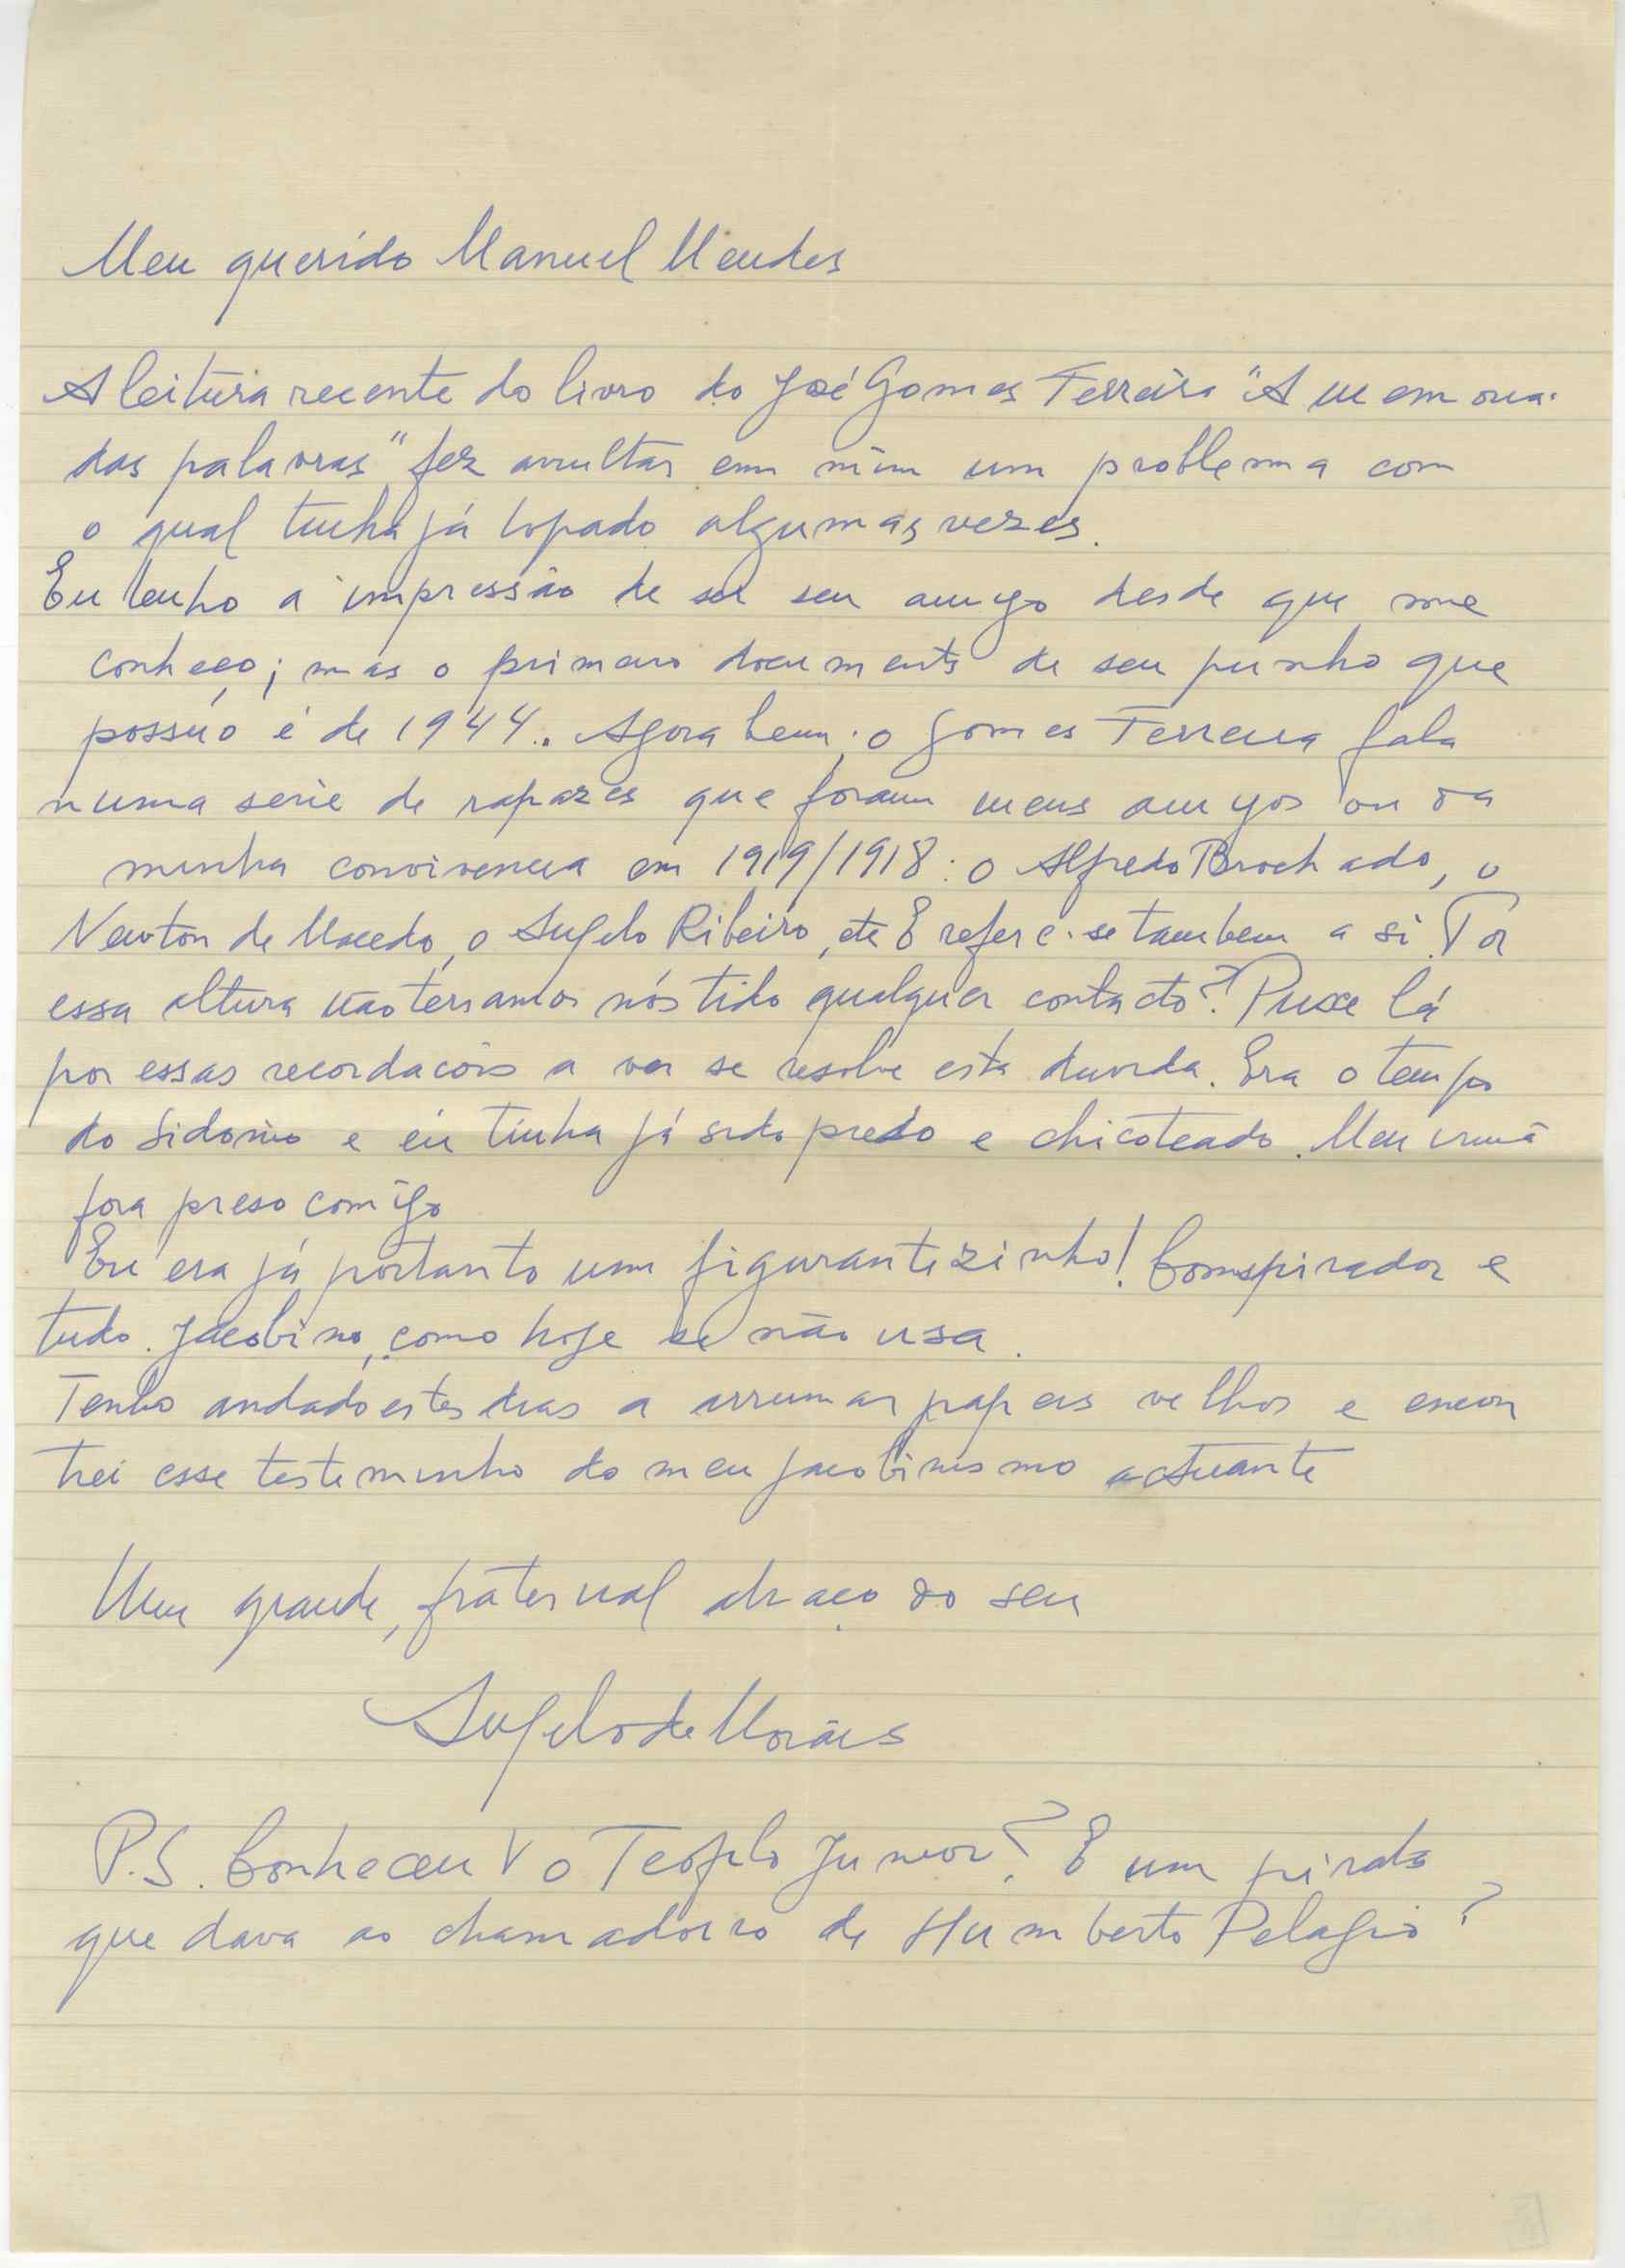 Meu querido Manuel Mendes
A leitura recente do livro do José Gomes Ferreira "A memoria
das palavras" fez avultar em mim um problema com
o qual tinha já topado algumas vezes.
Eu tenho a impressão de ser seu amigo desde que me
conheço; mas o primeiro documento de seu punho que
possuo é de 1944. Agora bem: o Gomes Ferreira fala
numa serie de rapazes que foram meus amigos ou da
minha convivencia em 1919/1918: o Alfredo Brochado, o
Newton de Macedo, o Angelo Ribeiro, etc E refere-se tambem a si. Por
essa altura não teriamos nós tido qualquer contacto? Puxe lá
por essas recordacões a ver se resolve esta duvida. Era o tempo
do Sidonio e eu tinha já sido preso e chicoteado. Meu irmão
fora preso comigo
Eu era já portanto um figurantezinho! Conspirador e
tudo. Jacobino, como hoje se não usa.
Tenho andado estes dias a arrumar papeis velhos e encon
trei esse testemunho do meu jacobinismo actuante
Um grande, fraternal abraço do seu
Angelo de Morais
P.S. Conheceu V o Teofilo Junior? E um
que dava ao chamadoiro de Humberto Pelagio?